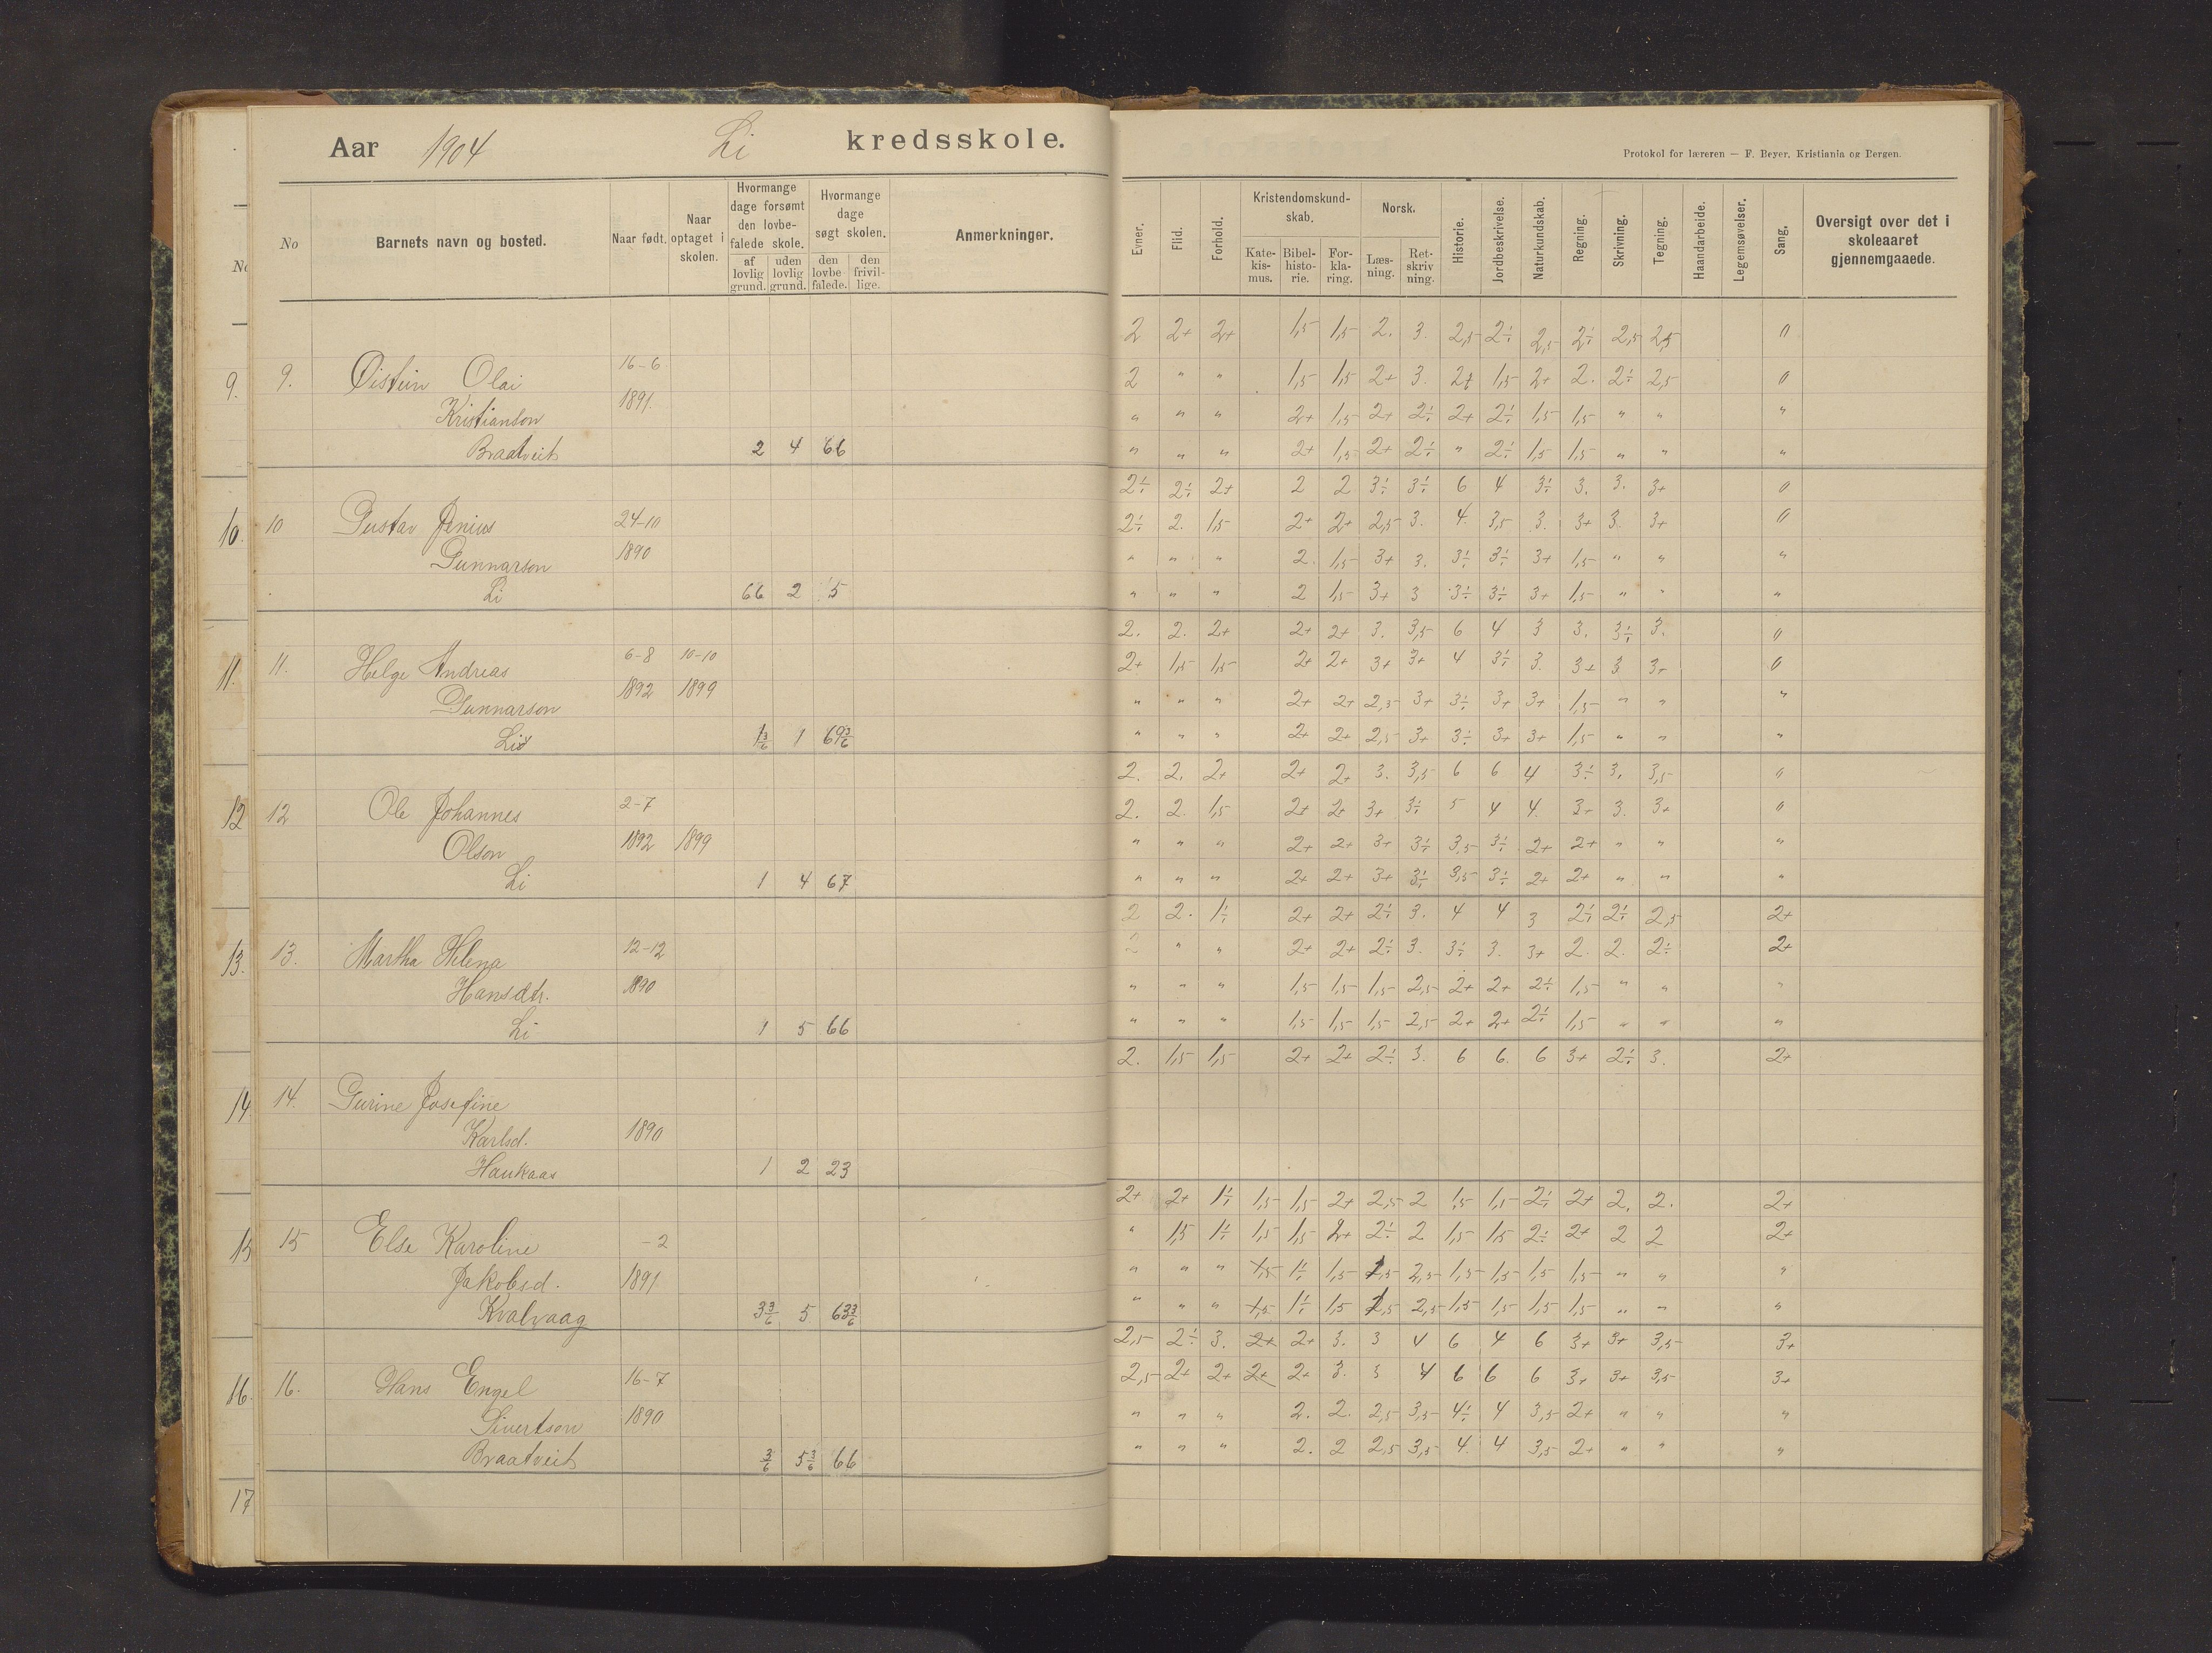 Aar 1904 Li kredsskole.
Protokol for læreren — F. Beyer, Kristiania og Bergen.
No Barnets navn og bosted. Naar født. Naar optaget i skolen. Hvormange dage forsømt den lovbefalede skole. af lovlig grund. uden lovlig grund. Hvormange dage søgt skolen. den lovbefalede. den frivillige. Anmerkninger.
Evner. Flid. Forhold. Kristendomskundskab. Katekismus. Bibelhistorie. Forklaring. Norsk. Læsning. Retskrivning. Historie. Jordbeskrivelse. Naturkundskab. Regning. Skrivning. Tegning. Haandarbeide. Legemsøvelser. Sang. Oversigt over det i skoleaaret gjennemgaaede.
2 2+ 2+ 1,5 1,5 2. 3. 2,5 2÷ 2,5 2÷ 2,5 2,5 0
9. 9. Øistein Olai 16-6
2 " " 1,5 1,5 2+ 3. 2+ 1,5 2+ 2. 2÷ 2,5 0
Kristianson 1891.
" " " 2+ 1,5 2+ 2÷ 2+ 2÷ 1,5 1,5 " " "
Braatveit 2 4 66
" " " 2+ 1,5 2+ 2÷ " 2÷ 1,5 1,5 " " "
2÷ 2÷ 2+ 2 2 3÷ 3÷ 6 4 3÷ 3. 3. 3+ 0
10. 10 Gustav Jenius 24-10
2÷ 2. 1,5 2+ 2+ 2,5 3. 4. 3,5 3. 3+ 3. 3+ 0
Gunnarson 1890
" " " 2. 1,5 3+ 3. 3÷ 3÷ 3+ 1,5 " " "
Li 66 2 5
" " " 2 1,5 3+ 3 3÷ 3÷ 3+ 1,5 " " "
2. 2. 2+ 2+ 2+ 3. 3,5 6 4 3 3. 3÷ 3. 0
11. 11. Helge Andreas 6-8 10-10
2+ 1,5 1,5 2+ 2+ 3+ 3+ 4 3÷ 3. 3+ 3 3+ 0
Gunnarson 1892 1899
" " " 2+ 2+ 2,5 3+ 3÷ 3+ 3+ 1,5 " " "
Li 1 3/6 1 69 3/6
" " " 2+ 2+ 2,5 3+ 3÷ 3+ 3+ 1,5 " " "
2. 2. 2+ 2+ 2+ 3. 3,5 6 6 4 3÷ 3. 3,5 0
12 12 Ole Johannes 2-7
2. 2. 1,5 2+ 2+ 3+ 3÷ 5 4 4. 3+ 3. 3+ 0
Olson 1892 1899
" " " 2+ 2+ 3+ 3÷ 3,5 3÷ 2+ 2+ " " "
Li 1 4 67
" " " 2+ 2+ 3+ 3÷ 3,5 3÷ 2+ 2+ " " "
2 2. 1÷ 2+ 2+ 2÷ 3. 4 4 3 2÷ 2÷ 2,5 2+
13. 13. Martha Helena 12-12
2 " " 2+ 2+ 2÷ 3. 3÷ 3. 3+ 2. 2. 2÷ 2+
Hansdtr. 1890
" " " 1,5 1,5 1,5 2,5 2+ 2+ 2÷ 1,5 " " "
Li 1 5 66
" " " 1,5 1,5 1,5 2,5 2+ 2+ 2÷ 1,5 " " "
2. 1,5 1,5 2+ 2+ 2÷ 3. 6 6. 6 3+ 2÷ 3. 2+
14 14. Gurine Josefine
Karlsd. 1890
Haukaas 1 2 23
2+ 2+ 1÷ 1,5 1,5 2+ 2,5 2 1,5 1,5 2÷ 2+ 2. 2. 2+
15 15 Else Karoline -2
" 1,5 1÷ 1,5 1,5 2+ 2÷ 2 1,5 1,5 2÷ 2+ 2 2 2+
Jakobsd. 1891
" " " 1,5 1÷ 1,5 1,5 2,5 1,5 1,5 1,5 1,5 " " "
Kvalvaag 3 3/6 5 63 3/6
" " " 1,5 1÷ 1,5 1,5 2,5 1,5 1,5 1,5 1,5 " " "
2,5 2÷ 3. 2+ 2+ 3. 3 4 6 4 6 3+ 3+ 3,5 3+
16. 16. Hans Engel 16-7
2,5 2+ 2+ 2+ 2+ 3. 3 4 6 6 6 3+ 3+ 3,5 3+
Sivertson 1890
" " " 2. 2. 2,5 3,5 4÷ 4 3,5 2+ " " "
Braatveit 3/6 5 3/6 66
" " " 2. 2 2,5 3,5 4. 4 3,5 2+ " " "
17